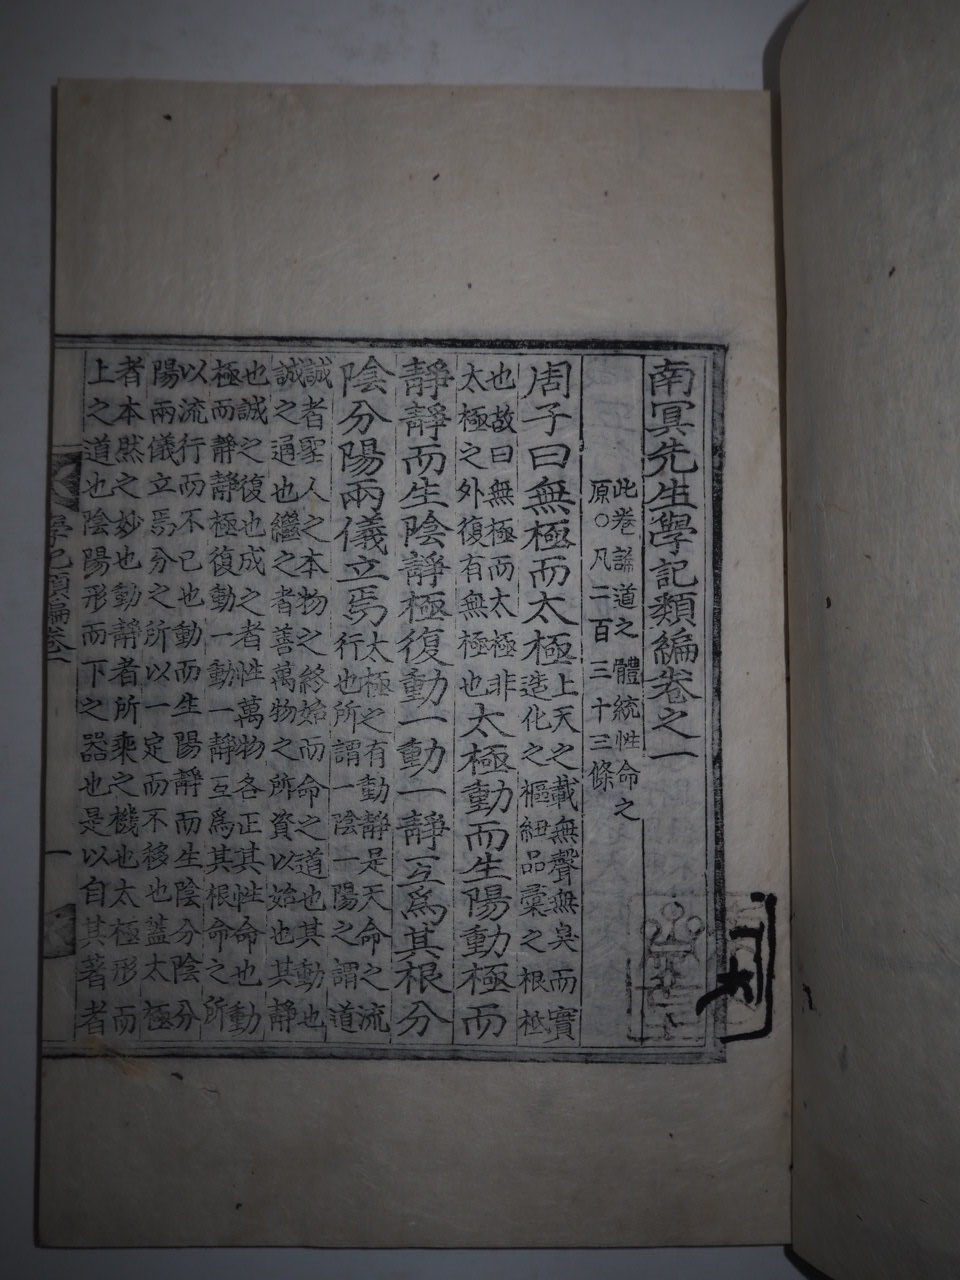 南冥先生學記類編卷之一
此卷論道之體統性命之
原○凡二百三十三條
周子曰無極而太極上天之載無聲無臭而實
造化之樞紐品彙之根柢
也故曰無極而太極非
太極之外復有無極也太極動而生陽動極而
靜靜而生陰靜極復動一動一靜互爲其根分
陰分陽兩儀立焉太極之有動靜是天命之流
行也所謂一陰一陽之謂道
誠者聖人之本物之終始而命之道也其動也
誠之通也繼之者善萬物之所資以始也其靜
也誠之復也成之者性萬物各正其性命也動
極而靜靜極復動一動一靜互爲其根命之所
以流行而不已也動而生陽靜而生陰分陰分
陽兩儀立焉分之所以一定而不移也蓋太極
者本然之妙也動靜者所乘之機也太極形而
上之道也陰陽形而下之器也是以自其著者
學記類編卷一
一